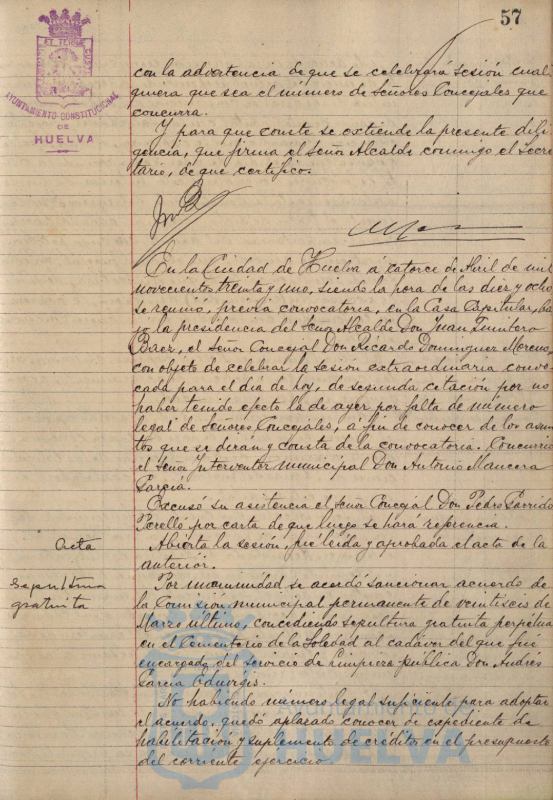 57
AYUNTAMIENTO CONSTITUCIONAL
DE
HUELVA
con la advertencia de que se celebrará sesión cual
quiera que sea el número de Señores Concejales que
concurra.
Y para que conste se extiende la presente dili
gencia, que firma el Señor Alcalde conmigo el Secre
tario, de que certifico.
En la Ciudad de Huelva á catorce de Abril de mil
novecientos treinta y uno, siendo la hora de las diez y ocho
se reunió, previa convocatoria, en la Casa Capitular, ba
jo la presidencia del Señor Alcalde Don Juan Quintero
Baez, el Señor Concejal Don Ricardo Dominguez Moreno,
con objeto de celebrar la sesión extraordinaria convo
cada para el día de hoy, de segunda citación por no
haber tenido efecto la de ayer por falta de número
legal de Señores Concejales, á fin de conocer de los asun
tos que se dirán y consta de la convocatoria. Concurrió
el Señor Interventor municipal Don Antonio Mancera
García.
Excusó su asistencia el Señor Concejal Don Pedro Garrido
Perelló por carta de que luego se hará referencia.
Acta
Abierta la sesión, fué leída y aprobada el acta de la
anterior.
Sepultura
gratuita
Por unanimidad se acordó sancionar acuerdo de
la Comisión municipal permanente de veintiseis de
Marzo último, concediendo sepultura gratuita perpetua
en el Cementerio de la Soledad al cadáver del que fué
encargado del servicio de limpieza pública Don Andrés
García Eduvigis.
No habiendo número legal suficiente para adoptar
el acuerdo, quedó aplazado conocer de expediente de
habilitación y suplemento de créditos en el presupuesto
del corriente ejercicio.
HUELVA